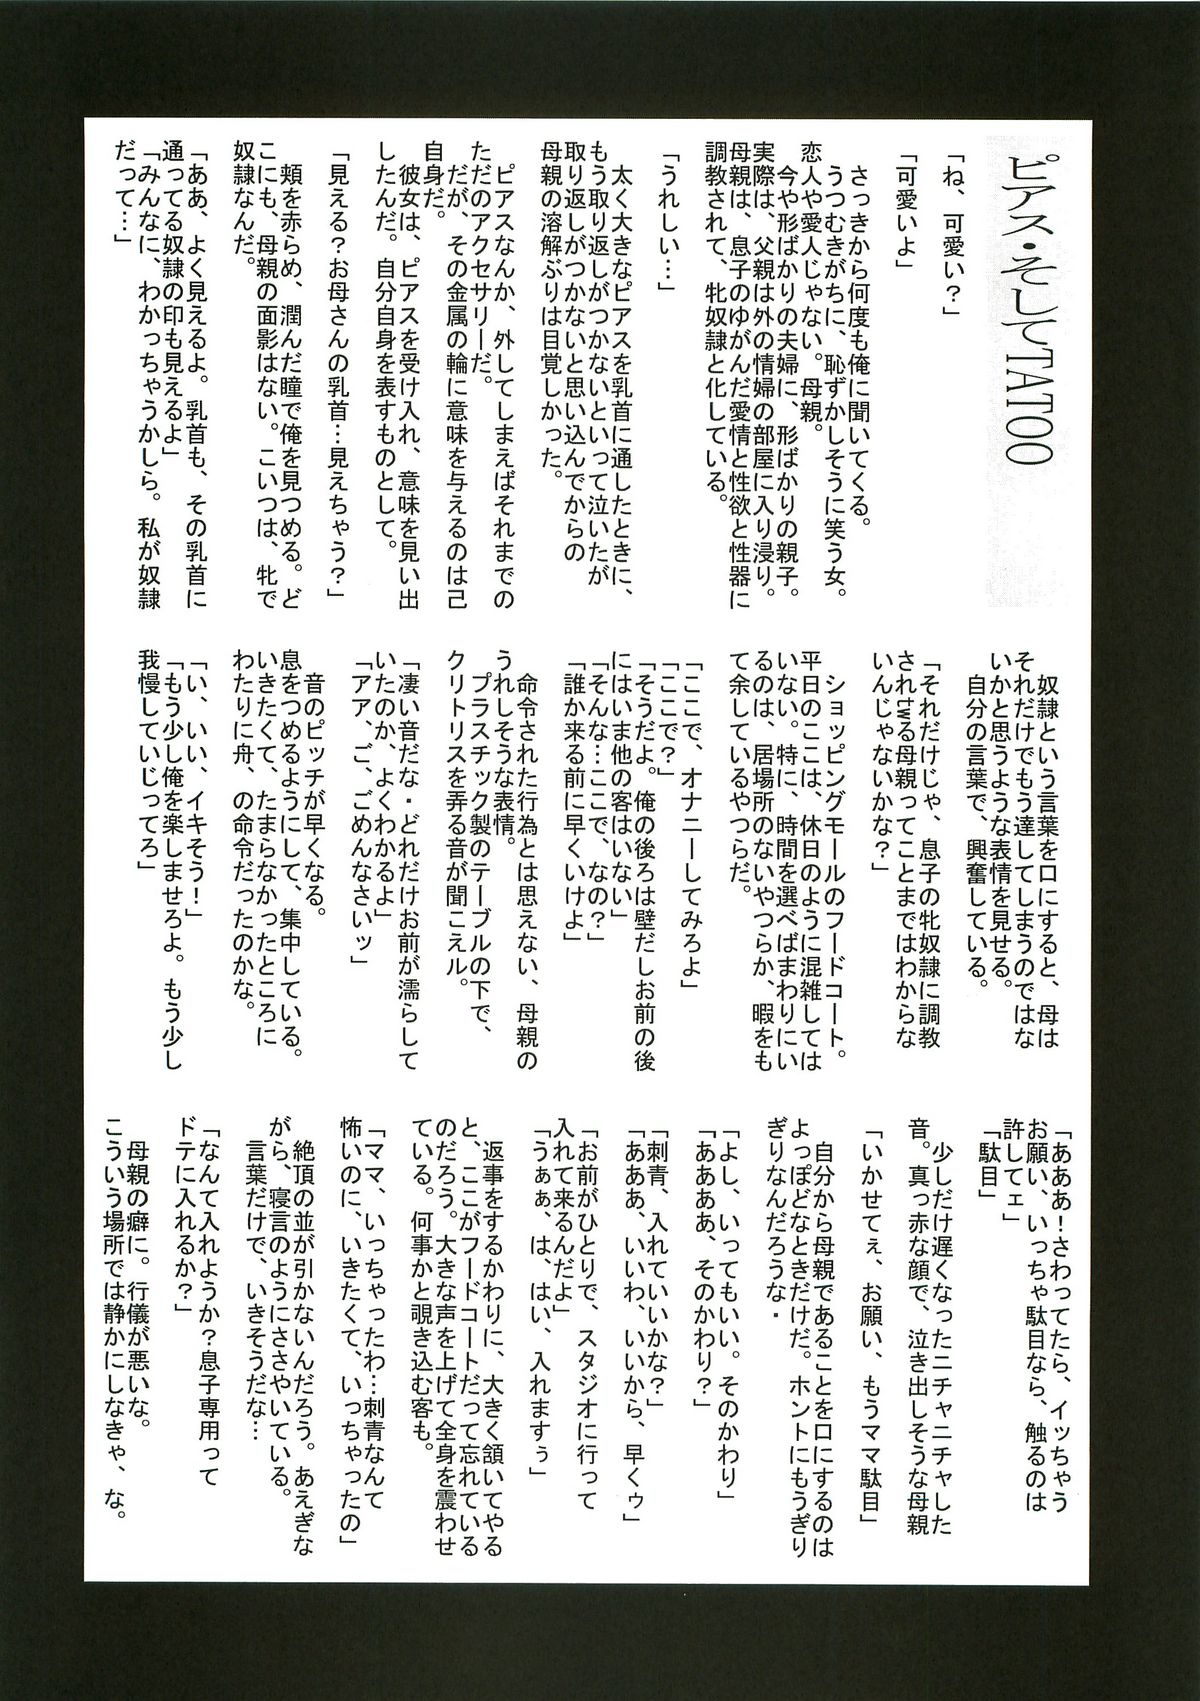 ピアス・そしてTATOO
「ね、可愛い?」
「可愛いよ」
さっきから何度も俺に聞いてくる。
うつむきがちに、恥ずかしそうに笑う女。
恋人や愛人じゃない。母親。
今や形ばかりの夫婦に、形ばかりの親子。
実際は、父親は外の情婦の部屋に入り浸り。
母親は、息子のゆがんだ愛情と性欲と性器に
調教されて、牝奴隷と化している。
「うれしい…」
太く大きなピアスを乳首に通したときに、
もう取り返しがつかないといって泣いたが、
取り返しがつかないと思い込んでからの
母親の溶解ぶりは目覚しかった。
ピアスなんか、外してしまえばそれまでの
ただのアクセサリーだ。
だが、その金属の輪に意味を与えるのは己
自身だ。
彼女は、ピアスを受け入れ、意味を見い出
したんだ。自分自身を表すものとして。
「見える?お母さんの乳首…見えちゃう?」
頬を赤らめ、潤んだ瞳で俺を見つめる。ど
こにも、母親の面影はない。こいつは、牝で
奴隷なんだ。
「ああ、よく見えるよ。乳首も、その乳首に
通ってる奴隷の印も見えるよ」
「みんなに、わかっちゃうかしら。私が奴隷
だって…」
奴隷という言葉を口にすると、母は
それだけでもう達してしまうのではな
いかと思うような表情を見せる。
自分の言葉で、興奮している。
「それだけじゃ、息子の牝奴隷に調教
されtwる母親ってことまではわからな
いんじゃないかな?」
ショッピングモールのフードコート。
平日のここは、休日のように混雑しては
いない。特に、時間を選べばまわりにい
るのは、居場所のないやつらか、暇をも
て余しているやつらだ。
「ここで、オナニーしてみろよ」
「ここで?」
「そうだよ。俺の後ろは壁だしお前の後
にはいま他の客はいない」
「そんな…ここで、なの?」
「誰か来る前に早くいけよ」
命令された行為とは思えない、母親の
うれしそうな表情。
プラスチック製のテーブルの下で、
クリトリスを弄る音が聞こえル。
「凄い音だな・どれだけお前が濡らして
いたのか、よくわかるよ」
「アア、ご、ごめんなさいッ」
音のピッチが早くなる。
息をつめるようにして、集中している。
いきたくて、たまらなかったところに
わたりに舟、の命令だったのかな。
「い、いい、イキそう!」
「もう少し俺を楽しませろよ。もう少し
我慢していじってろ」
「あああ!さわってたら、イッちゃう
お願い、いっちゃ駄目なら、触るのは
許してェ」
「駄目」
少しだけ遅くなったニチャニチャした
音。真っ赤な顔で、泣き出しそうな母親
「いかせてぇ、お願い、もうママ駄目」
自分から母親であることを口にするのは
よっぽどなときだけだ。ホントにもうぎり
ぎりなんだろうな・
「よし、いってもいい。そのかわり」
「ああああ、そのかわり?」
「刺青、入れていいかな?」
「あああ、いいわ、いいから、早くゥ」
「お前がひとりで、スタジオに行って
入れて来るんだよ」
「うぁぁ、は、はい、入れますぅ」
返事をするかわりに、大きく頷いてやる
と、ここがフードコートだって忘れている
のだろう。大きな声を上げて全身を震わせ
ている。何事かと覗き込む客も。
「ママ、いっちゃったわ…刺青なんて
怖いのに、いきたくて、いっちゃったの」
絶頂の並が引かないんだろう。あえぎな
がら、寝言のようにささやいている。
言葉だけで、いきそうだな…
「なんて入れようか?息子専用って
ドテに入れるか?」
母親の癖に。行儀が悪いな。
こういう場所では静かにしなきゃ、な。